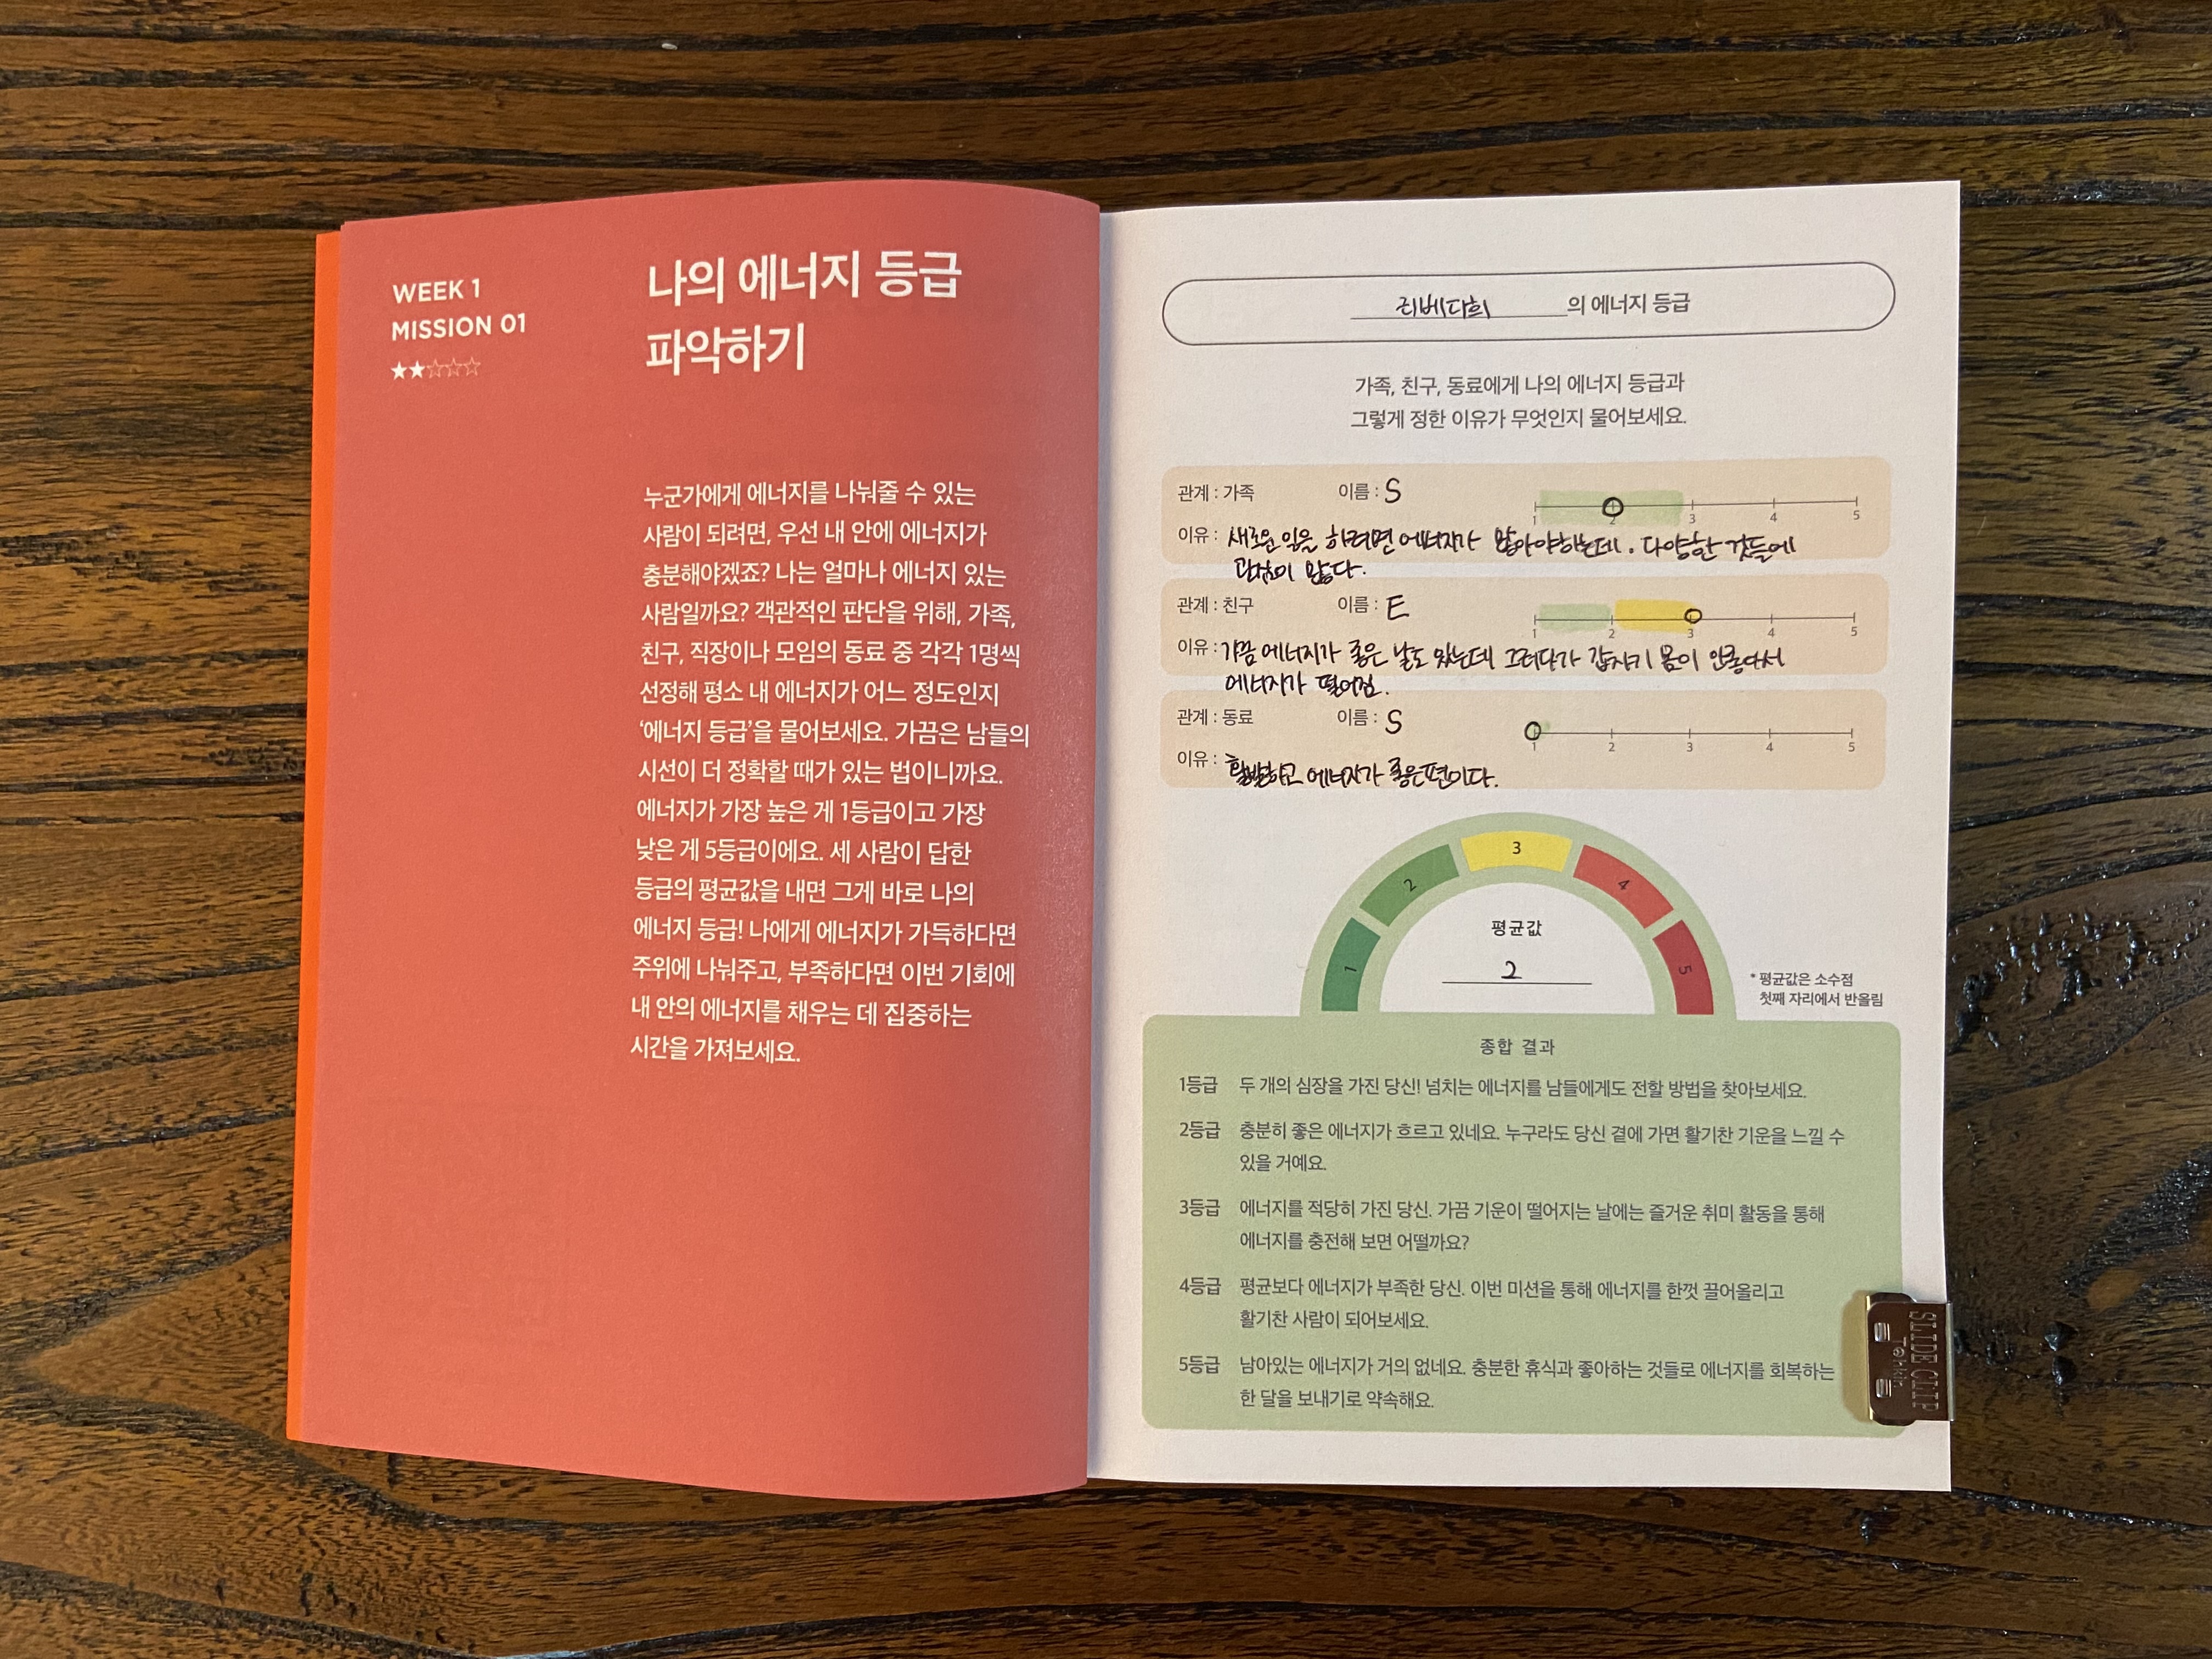 WEEK 1
MISSION 01
★★☆☆☆
나의 에너지 등급
파악하기
누군가에게 에너지를 나눠줄 수 있는
사람이 되려면, 우선 내 안에 에너지가
충분해야겠죠? 나는 얼마나 에너지 있는
사람일까요? 객관적인 판단을 위해, 가족,
친구, 직장이나 모임의 동료 중 각각 1명씩
선정해 평소 내 에너지가 어느 정도인지
‘에너지 등급’을 물어보세요. 가끔은 남들의
시선이 더 정확할 때가 있는 법이니까요.
에너지가 가장 높은 게 1등급이고 가장
낮은 게 5등급이에요. 세 사람이 답한
등급의 평균값을 내면 그게 바로 나의
에너지 등급! 나에게 에너지가 가득하다면
주위에 나눠주고, 부족하다면 이번 기회에
내 안의 에너지를 채우는 데 집중하는
시간을 가져보세요.
리베다희 의 에너지 등급
가족, 친구, 동료에게 나의 에너지 등급과
그렇게 정한 이유가 무엇인지 물어보세요.
관계 : 가족 이름 : S
1 2 3 4 5
이유 : 새로운 일을 하려면 에너지가 많아야하는데. 다양한 것들에
관심이 많다.
관계 : 친구 이름 : E
1 2 3 4 5
이유 : 가끔 에너지가 좋은 날도 있는데 그러다가 갑자기 몸이 안좋아서
에너지가 떨어짐.
관계 : 동료 이름 : S
1 2 3 4 5
이유 : 활발하고 에너지가 좋은편이다.
1 2 3 4 5
평균값
2
* 평균값은 소수점
첫째 자리에서 반올림
종합 결과
1등급 두 개의 심장을 가진 당신! 넘치는 에너지를 남들에게도 전할 방법을 찾아보세요.
2등급 충분히 좋은 에너지가 흐르고 있네요. 누구라도 당신 곁에 가면 활기찬 기운을 느낄 수
있을 거예요.
3등급 에너지를 적당히 가진 당신. 가끔 기운이 떨어지는 날에는 즐거운 취미 활동을 통해
에너지를 충전해 보면 어떨까요?
4등급 평균보다 에너지가 부족한 당신. 이번 미션을 통해 에너지를 한껏 끌어올리고
활기찬 사람이 되어보세요.
5등급 남아있는 에너지가 거의 없네요. 충분한 휴식과 좋아하는 것들로 에너지를 회복하는
한 달을 보내기로 약속해요.
SLIDE CLIP